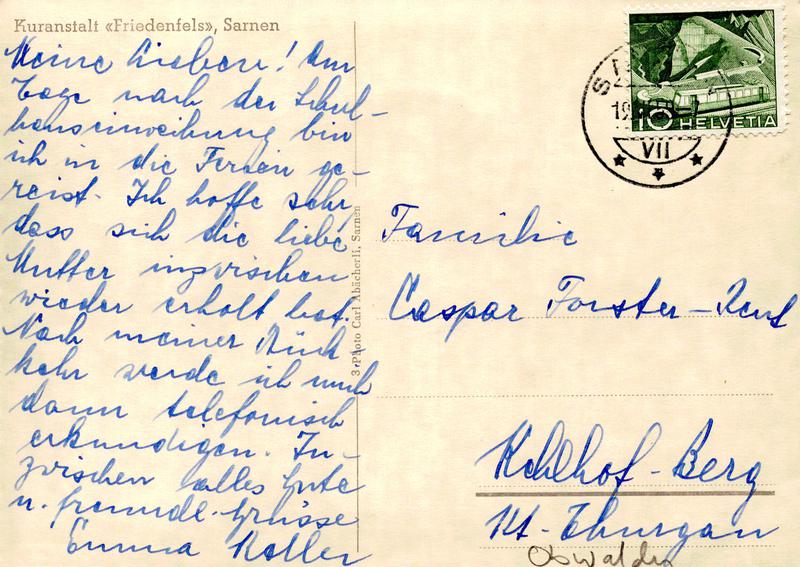 Kuranstalt «Friedenfels», Sarnen
Meine Lieben! Am
Tage nach der Schul-
hauseinweihung bin
ich in die Ferien ge-
reist. Ich hoffe sehr,
dass sich die liebe
Mutter inzwischen
wieder erholt hat.
Nach meiner Rück-
kehr werde ich mich
dann telefonisch
erkundigen. In-
zwischen alles Gute
u. freundl. Grüsse
Emma Keller
3 Photo Carl Abächerli, Sarnen
10 HELVETIA
VII
Familie
Caspar Forster-Rent
Kehlhof-Berg
Kt. Thurgau
Obwalden